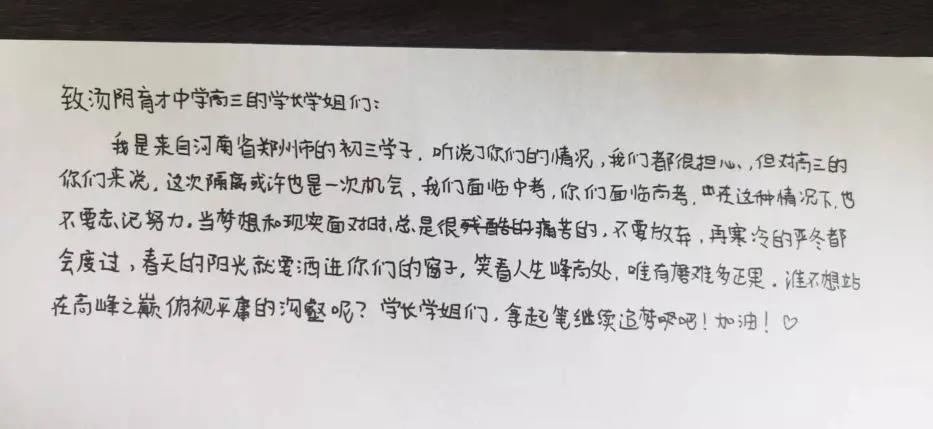 致汤阴育才中学高三的学长学姐们：
我是来自河南省郑州市的初三学子，听说了你们的情况，我们都很担心、但对高三的
你们来说，这次隔离或许也是一次机会，我们面临中考，你们面临高考，在这种情况下，也
不要忘记努力。当梦想和现实面对时，总是很残酷的痛苦的，不要放弃，再寒冷的严冬都
会度过，春天的阳光就要洒进你们的窗子，笑看人生峰高处，唯有磨难多正果。谁不想站
在高峰之巅俯视平庸的沟壑呢？学长学姐们，拿起笔继续追梦吧！加油！♡